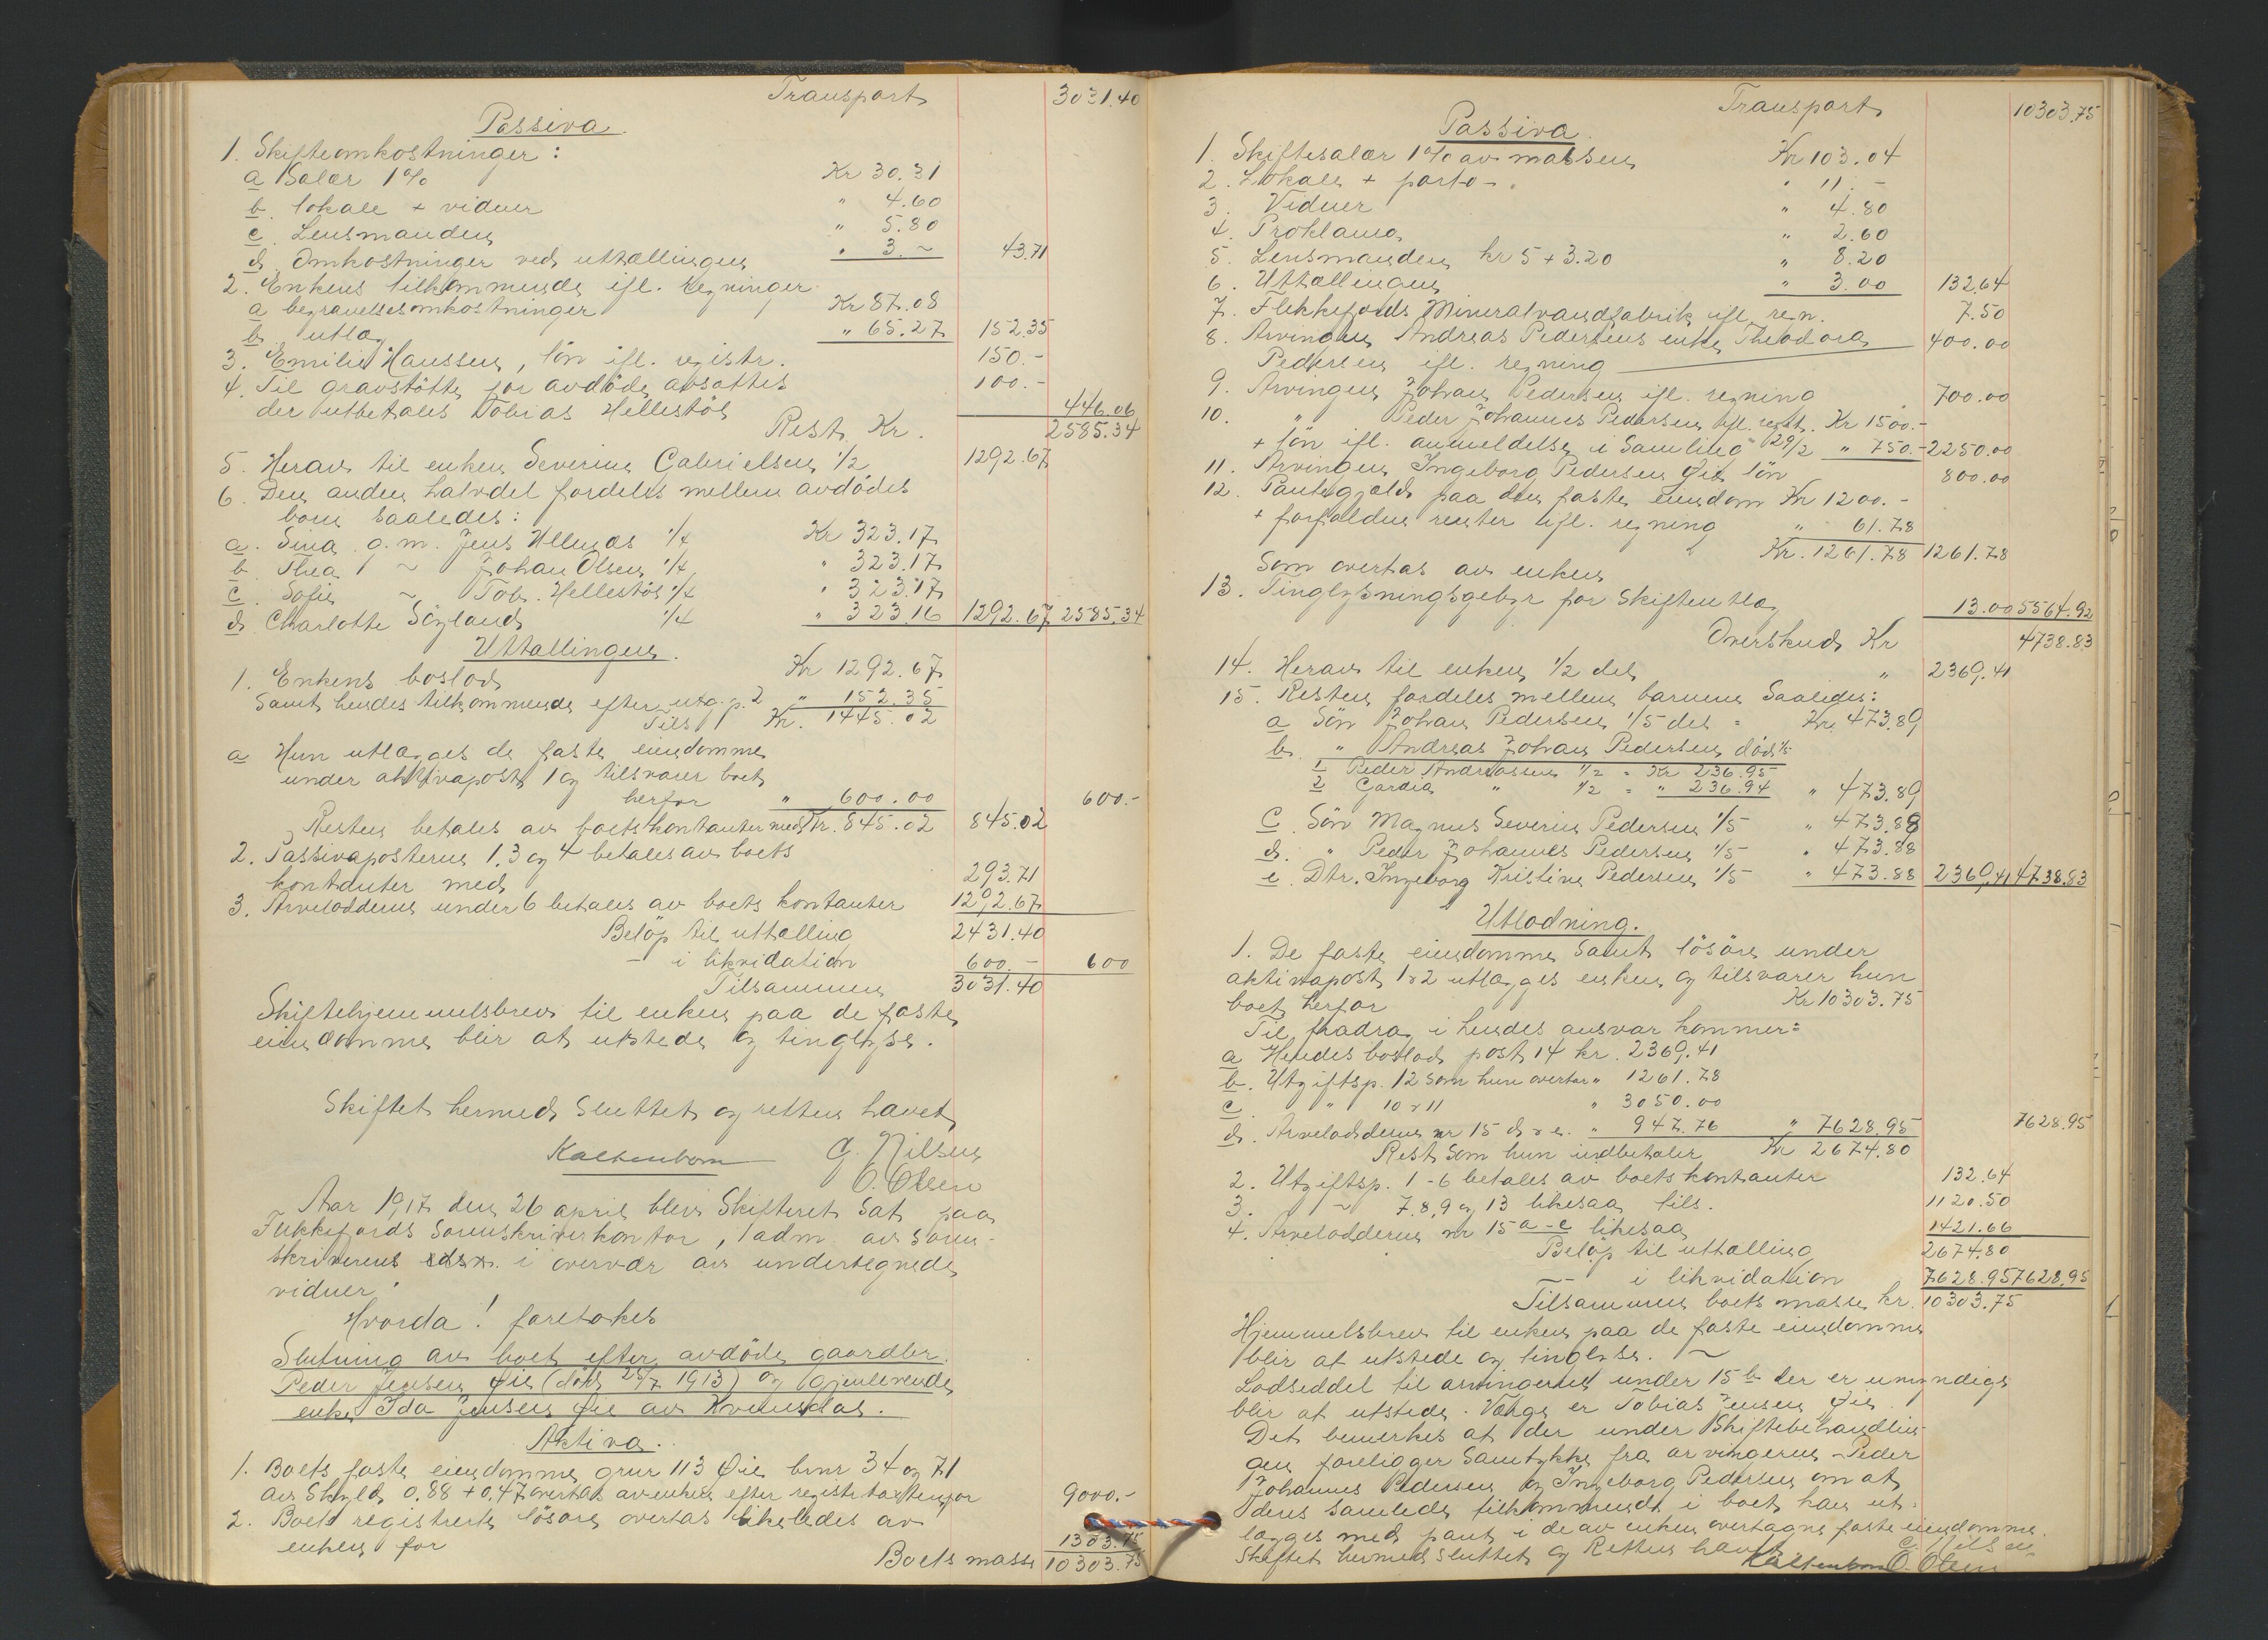 Transport 3031.40
Passiva.
1. Skifteomkostninger:
a Salær 1% Kr 30.31
b. lokale + vidner " 4.60
c. Lensmanden " 5.80
d. Omkostninger ved uttællingen " 3.~ 43.71
2. Enkens tilkommende ifl. regninger
a begravelsesomkostninger Kr 87.08
b. utlæg " 65.27 152.35
3. Emilie Hanssen, lön ifl. registr. 150.-
4. Til gravstötte for avdöde avsættes 100.-
der utbetales Tobias Hellestöl 446.06
Rest Kr. 2585.34
5. Herav til enken Severine Gabrielsen 1/2 1292.67
6. Den anden halvdel fordeles mellem avdödes
born saaledes:
a. Sina g.m. Jens Ullenæs 1/4 Kr 323.17
b. Thea ~ Johan Olsen 1/4 " 323.17
c. Sofie ~ Tob. Hellestöl 1/4 " 323.17
d. Charlotte Söyland 1/4 " 323.16 1292.67 2585.34
Uttællingen.
1. Enkens boslod Kr 1292.67
Samt hendes tilkommende efter utg. p. 2 " 152.35
Tils. Kr. 1445.02
a Hun utlægges de faste eiendomme
under aktivapost 1 og tilsvarer boet
herfor " 600.00 600.-
Resten betales av boets kontanter med Kr. 845.02 845.02
2. Passivaposterne 1, 3 og 4 betales av boets
kontanter med 293.71
3. Arvelodderne under 6 betales av boets kontanter 1292.67
Belöp til uttælling 2431.40
- i likvidation 600.- 600
Tilsammen 3031.40
Skiftehjemmelsbrev til enken paa de faste
eiendomme blir at utstede og tinglyse.
Skiftet hermed sluttet og retten hævet
Kaltenborn G. Nilsen
O. Olsen
Aar 1917 den 26 april blev Skifteret sat paa
Flekkefjords Sorenskriverkontor, adm. av soren-
skriveren i overvær av undertegnede
vidner.
Hvorda! foretokes
Slutning av boet efter avdöde gaardbr.
Peder Jensen Øie (död 28/7 1913) og gjenlevende
enke Ida Jensen Øie av Kvinesdal.
Aktiva.
1. Boets faste eiendomme gnr 113 Øie brnr 34 og 71
av Skyld 0.88 + 0.47 overtas av enken efter registr.taksten for 9000.-
2. Boets registrerte lösöre overtas likeledes av
enken for 1303.75
Boets masse 10303.75
Transport 10303.75
Passiva.
1. Skiftesalær 1% av massen Kr 103.04
2. Lokale + porto - " 11.-
3. Vidner " 4.80
4. Proklama " 2.60
5. Lensmanden kr 5 + 3.20 " 8.20
6. Uttællingen " 3.00 132.64
7. Flekkefjords Mineralvandfabrik ifl. regn. 7.50
8. Arvingen Andreas Pedersens enke Theodora 400.00
Pedersen ifl. regning
9. Arvingen Johan Pedersen ifl. regning 700.00
10. " Peder Johannes Pedersen ifl. regist. Kr 1500.-
+ lön ifl. anmeldelse i Samling 29/2 " 750.- 2250.00
11. Arvingen Ingeborg Pedersen Øie lön 800.00
12. Pantegjæld paa den faste eiendom Kr 1200.-
+ forfaldne renter ifl. regning " 61.78
Kr. 1261.78 1261.78
Som overtas av enken
13. Tinglysningsgebyr for Skifteutlæg 13.00 5564.92
Overskud Kr 4738.83
14. Herav til enken 1/2 del " 2369.41
15. Resten fordeles mellem barnene saaledes:
a Sön Johan Pedersen 1/5 del = Kr. 473.89
b. " Andreas Johan Pedersen död 1/5
1 Peder Andreassen 1/2 = Kr 236.95
2 Gardia " 1/2 = " 236.94 " 473.89
c. Sön Magnus Severin Pedersen 1/5 " 473.88
d. " Peder Johannes Pedersen 1/5 " 473.88
e. Dtr. Ingeborg Kristine Pedersen 1/5 " 473.88 2369.41 4738.83
Utlodning.
1. De faste eiendomme samt lösöre under
aktivapost 1 & 2 utlægges enken og tilsvarer hun
boet herfor Kr 10303.75
Til fradrag i hendes ansvar kommer:
a Hendes boslod post 14 kr. 2369.41
b. Utgiftsp. 12 som hun overtar " 1261.78
c " 10 & 11 " 3050.00
d. Arvelodderne nr 15 d & e. " 947.76 " 7628.95 7628.95
Rest som hun indbetaler Kr 2674.80
2. Utgiftsp. 1-6 betales av boets kontanter 132.64
3. ~ 7.8.9 og 13 likesaa tils. 1120.50
4. Arvelodderne nr 15 a-c likesaa 1421.66
Belöp til uttælling 2674.80
- i likvidation 7628.95 7628.95
Tilsammen boets masse kr. 10303.75
Hjemmelsbrev til enken paa de faste eiendomme
blir at utstede og tinglyse. ~
Lodseddel til arvingerne under 15 b der er umyndige
blir at utstede. Værge er Tobias Jensen Øie.
Det bemerkes at der under Skiftebehandlin-
gen foreligger Samtykke fra arvingerne Peder
Johannes Pedersen og Ingeborg Pedersen om at
deres samlede tilkommende i boet kan ut-
lægges med pant i de av enken overtagne faste eiendomme.
Skiftet hermed sluttet og Retten hævet. G. Nilsen
Kaltenborn O. Olsen